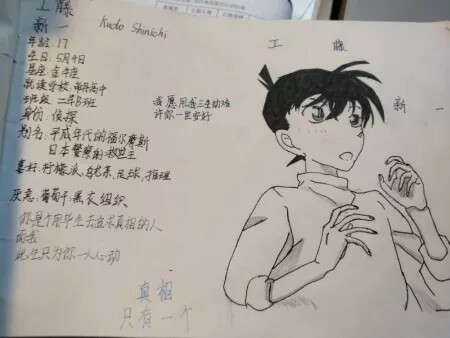 工藤
新一 Kudo Shinichi
年龄：17
生日：5月4日
星座：金牛座
就读学校：帝丹高中
班级：二年B班
身份：侦探
别名：平成年代的福尔摩斯
日本警察的救世主
喜好：柠檬派，乌龙茶，足球，推理
厌恶：葡萄干，黑衣组织
你是个用毕生去追求真相的人
而我
此生只为你一人心动
真相
只有一个
我愿用我三生动荡
许你一世安好
工 藤
新 一